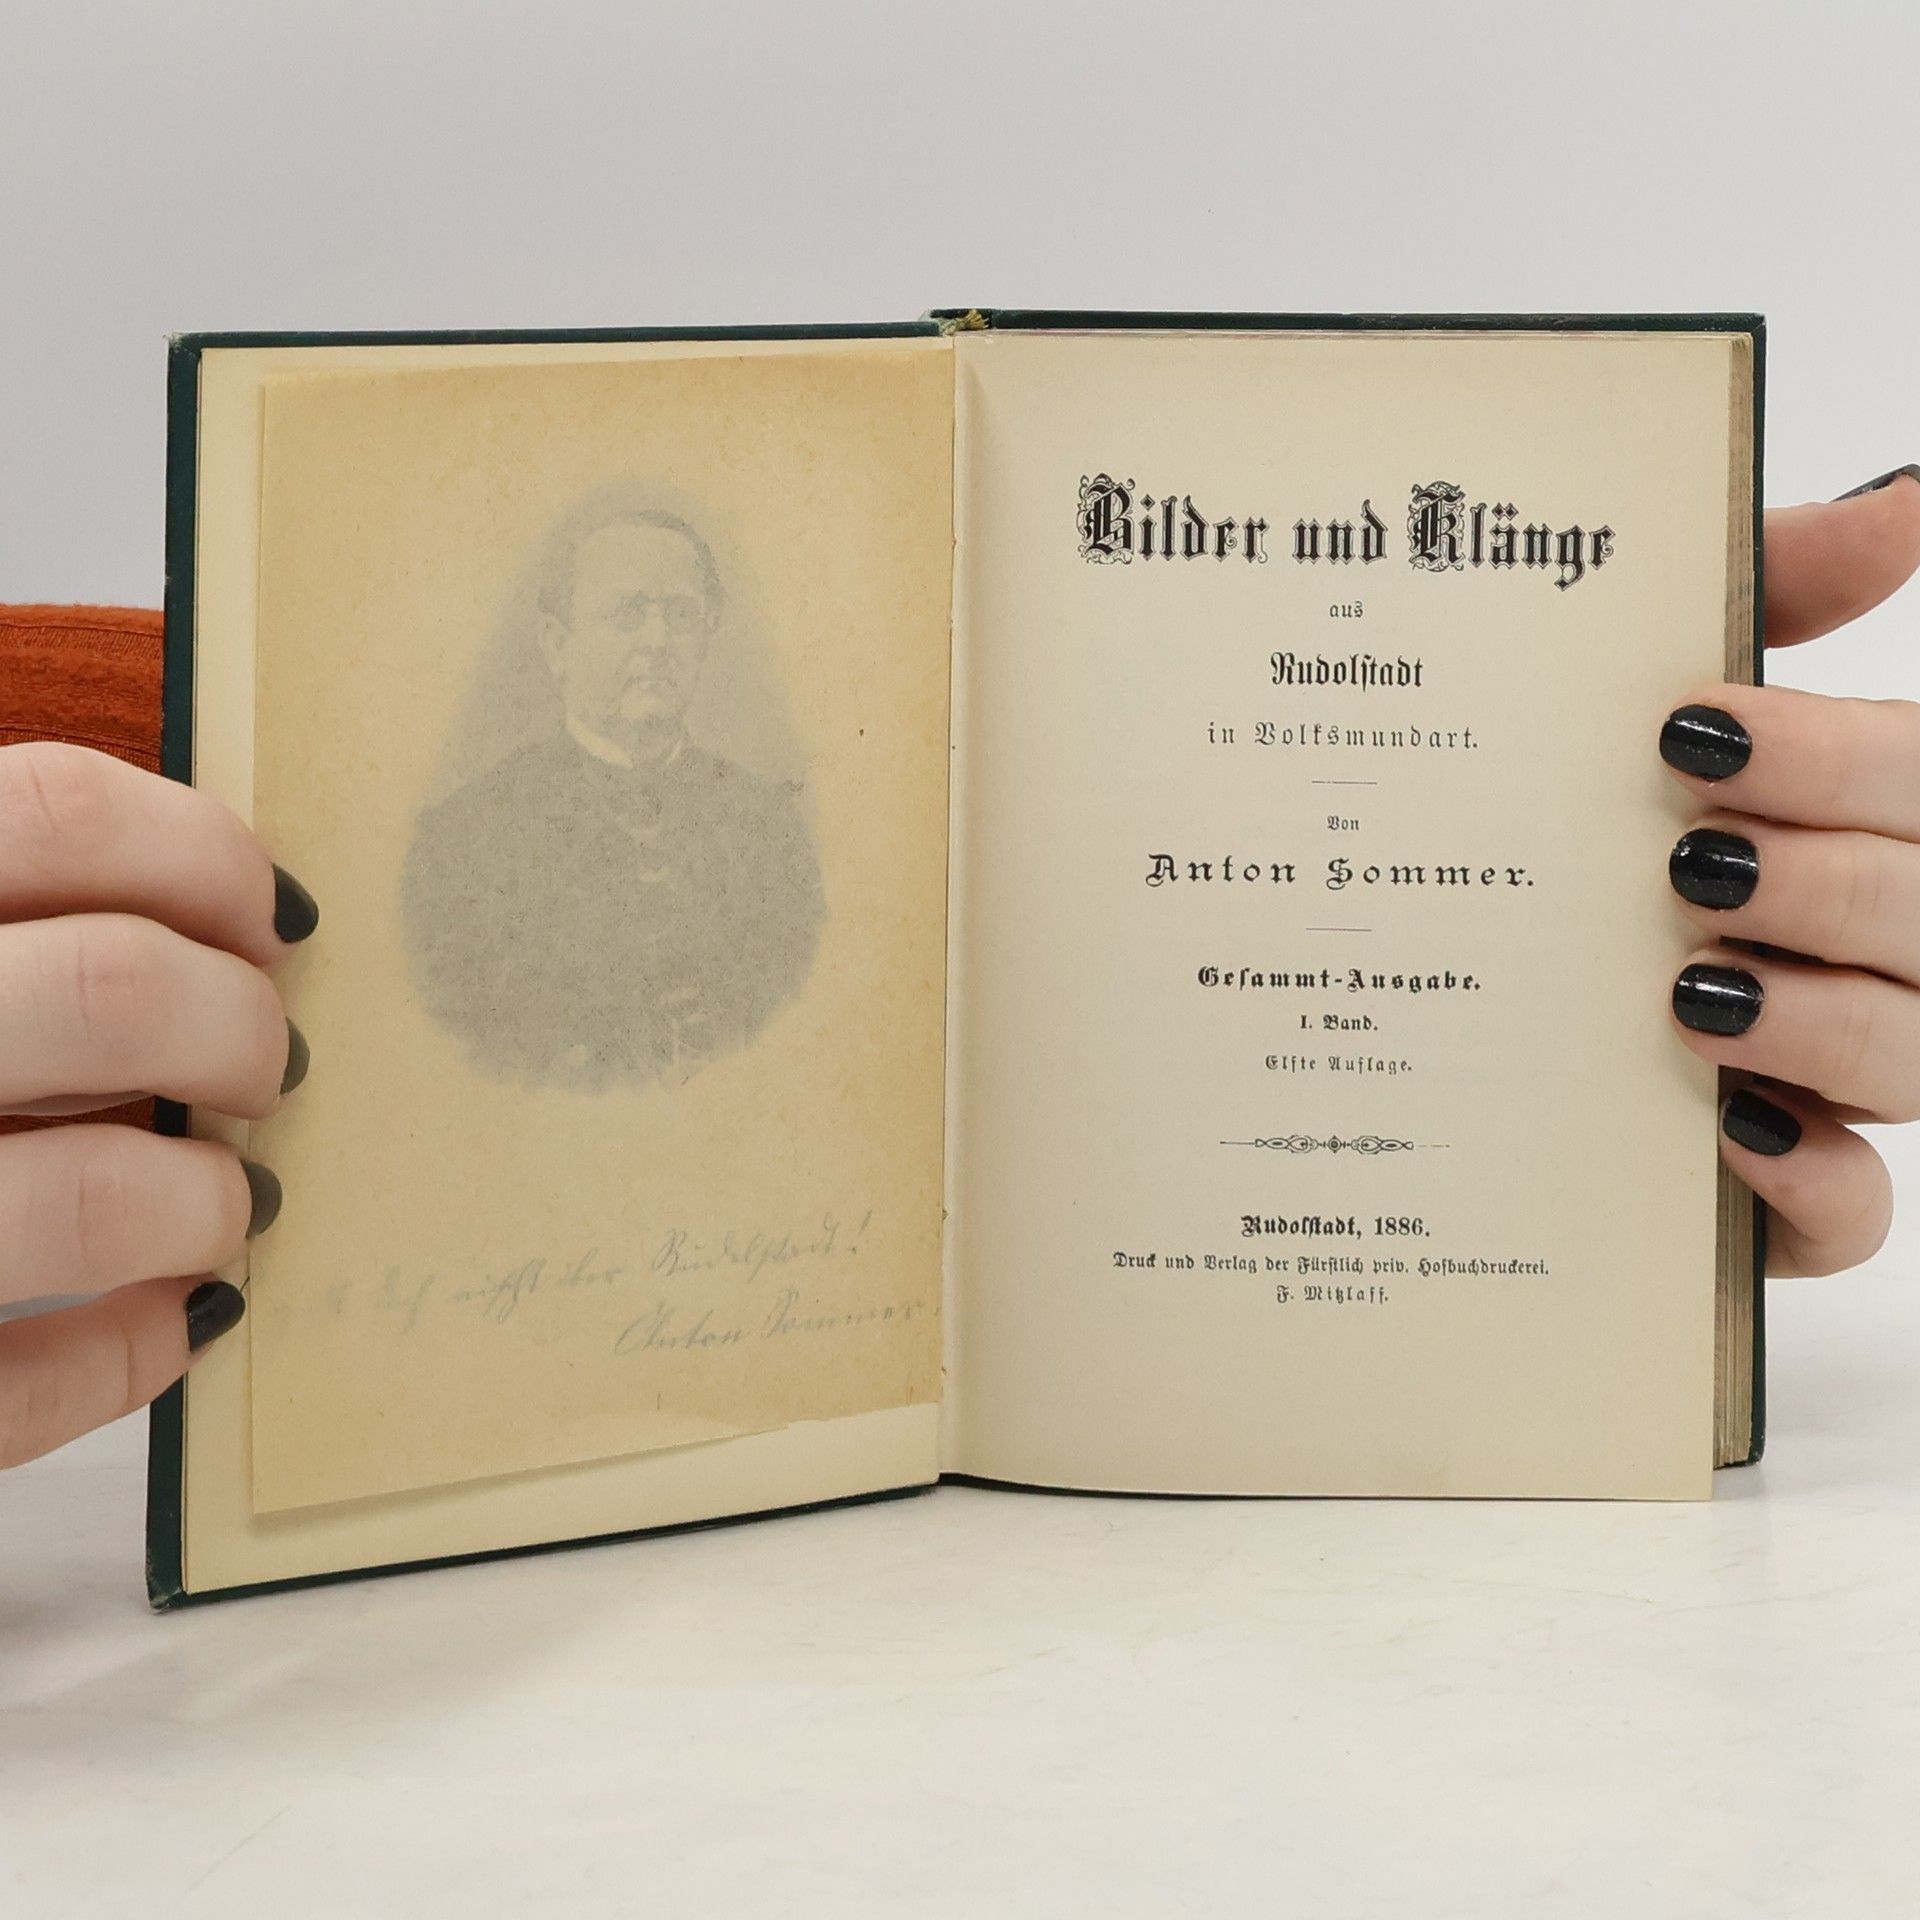 doch nischt iber Rudelstadt!
Anton Sommer.
Bilder und Klänge
aus
Rudolſtadt
in Volksmundart.
Von
Anton Sommer.
Geſammt-Ausgabe.
I. Band.
Elfte Auflage.
Rudolſtadt, 1886.
Druck und Verlag der Fürſtlich priv. Hofbuchdruckerei.
F. Mitzlaff.